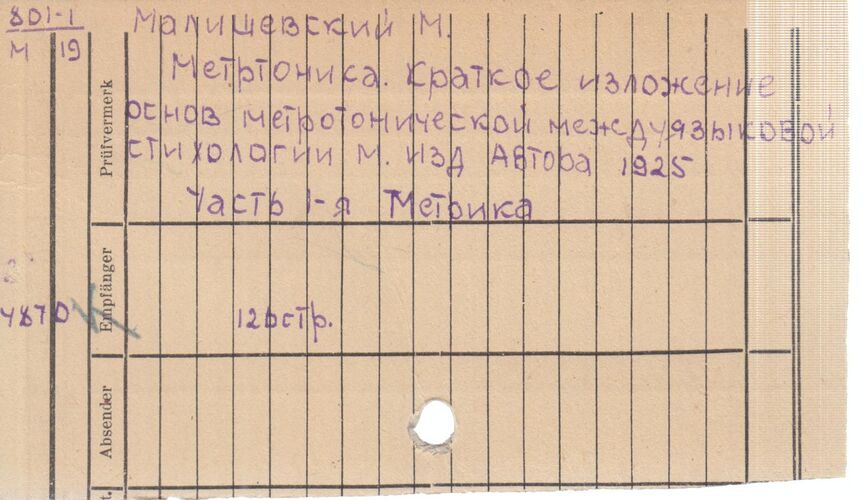 801-1 Малишевский М.
М 19
Метртоника. Краткое изложение
основ метротонической междуязыковой
стихологии М. изд Автора 1925
Часть 1-я Метрика
Prüfvermerk
Empfänger
4870
12ьстр.
Absender